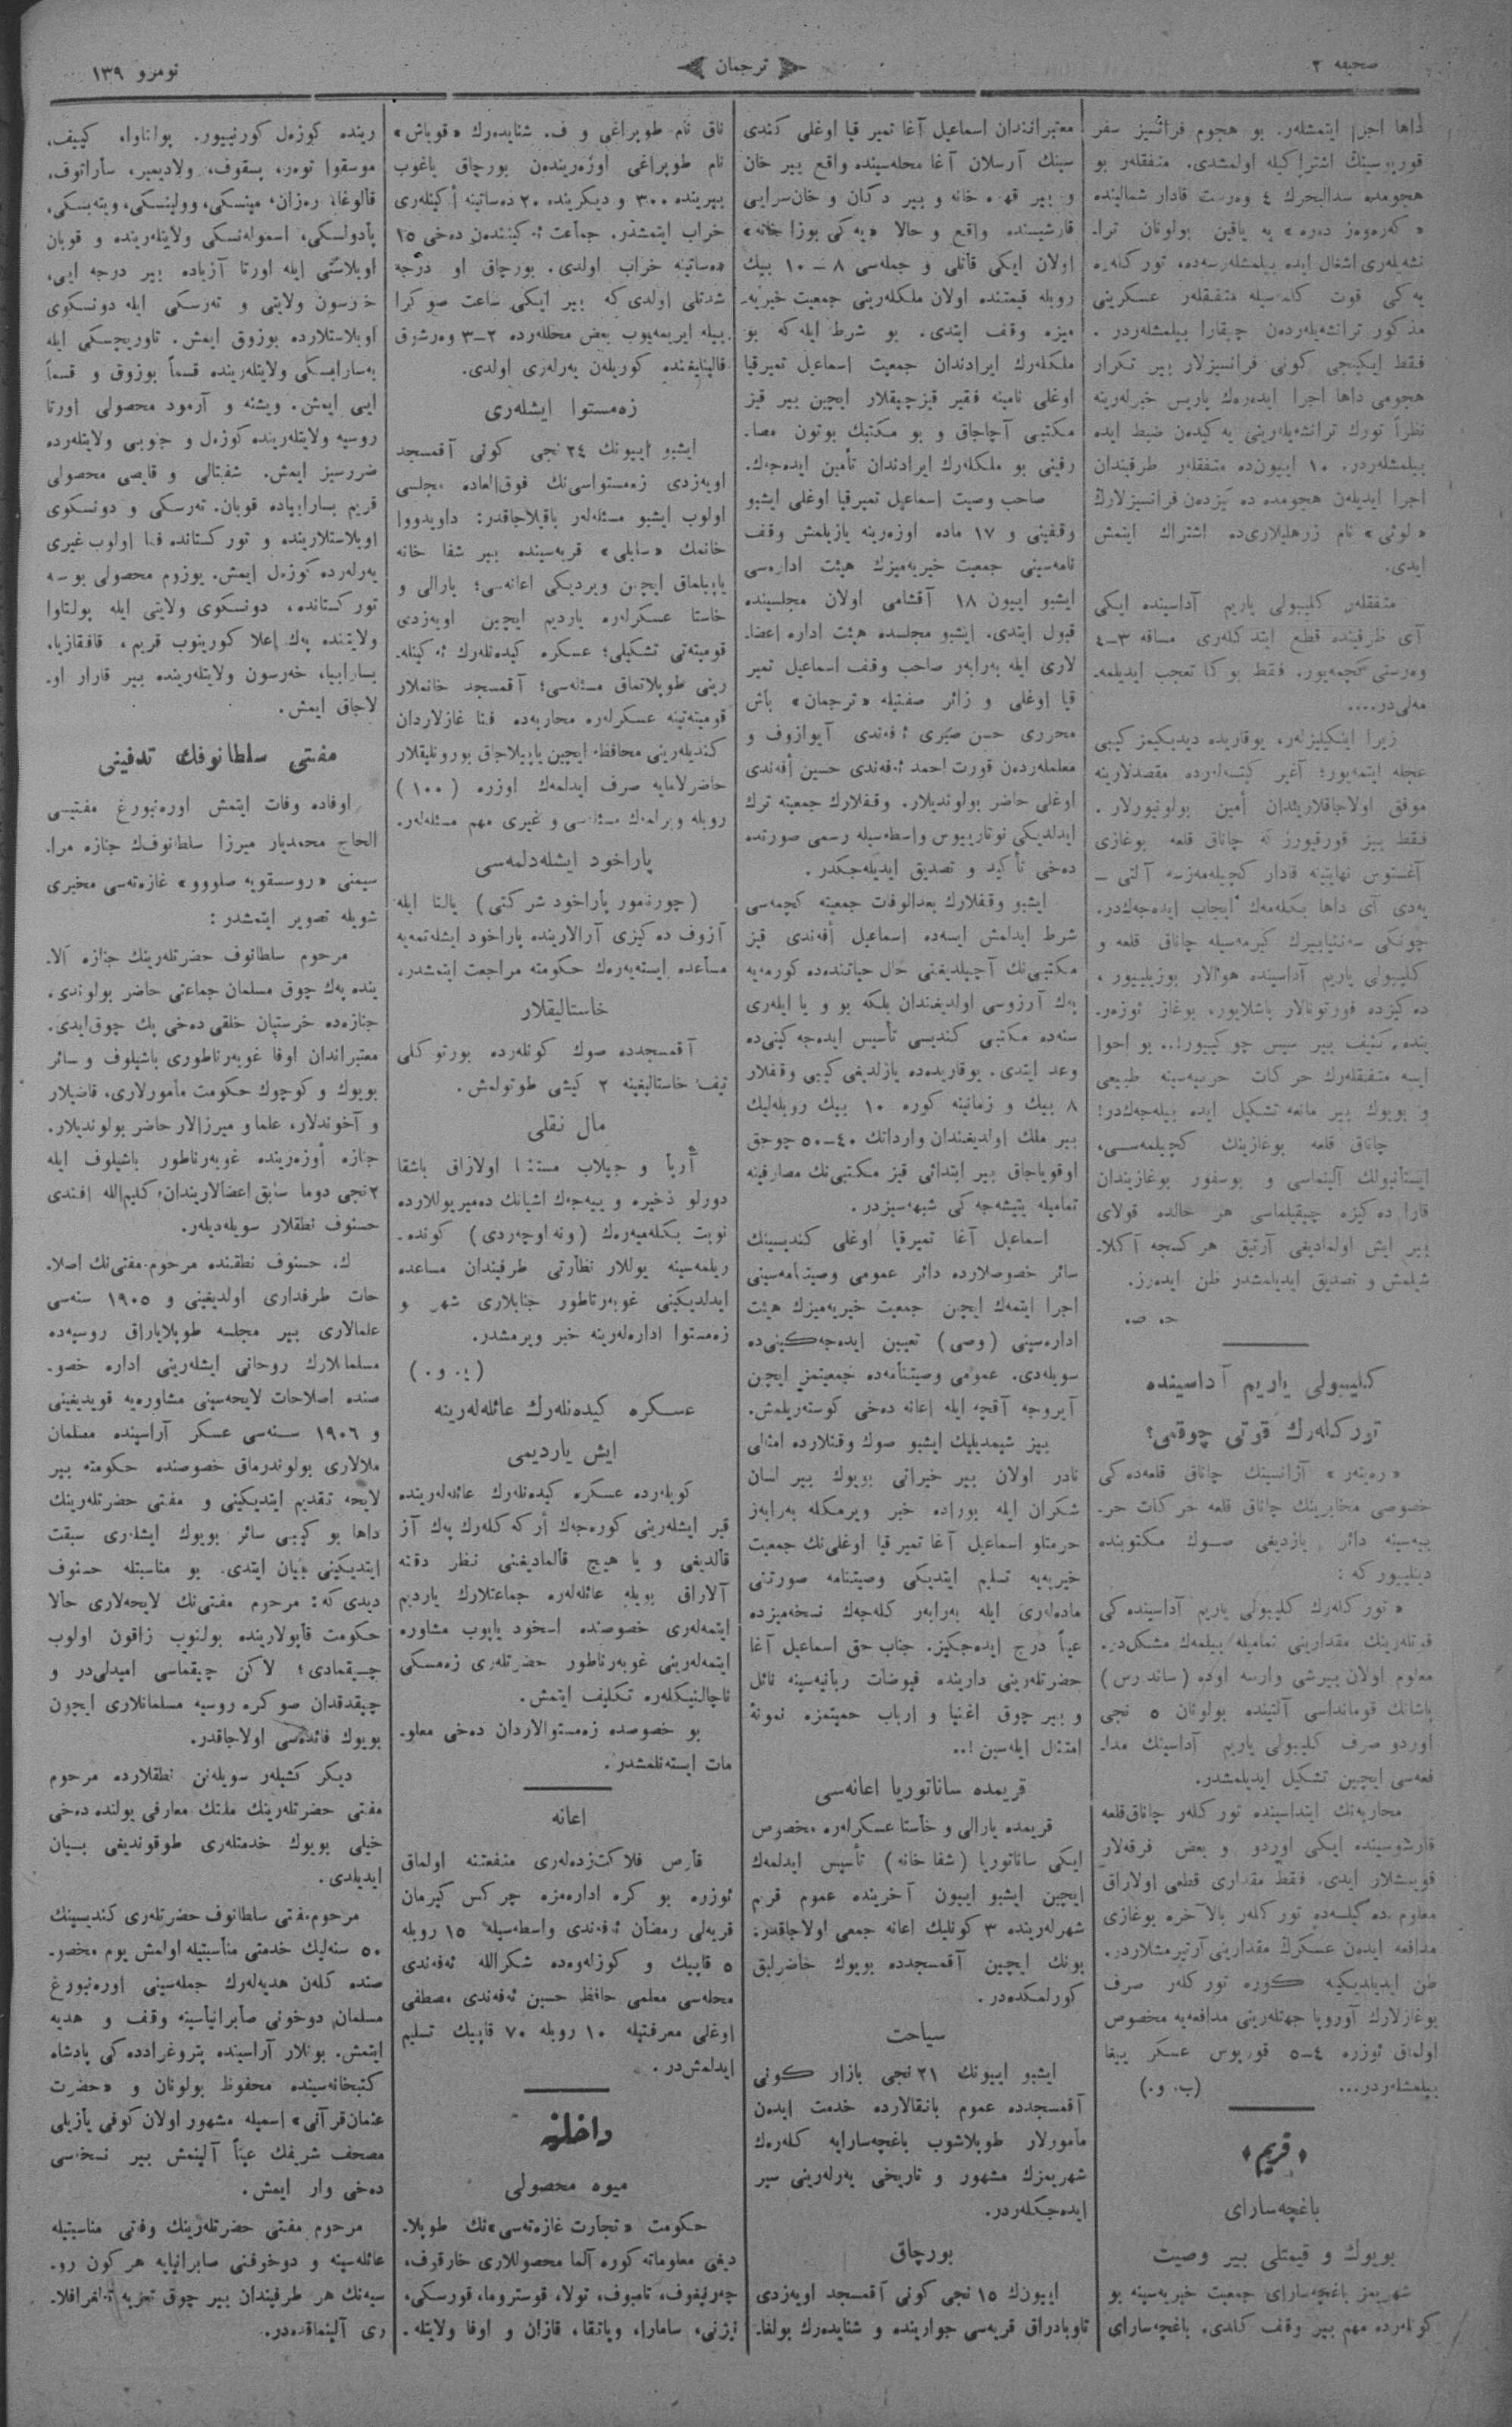 صحیفه ۲
ترجمان
نومرو ۱۳۹
داها اجرا ایتمشلەر. بو هجوم فرانسیز سفر
قورپوسینڭ اشتراکیله اولمشدی. متفقلەر بو
هجومده سدالبحرك ٤ وەرست قادار شمالینده
«کەرەوەز دەرە» یە یاقین بولونان ترا-
نشەیلەری اشغال ایده بیلمشلەرسەده، تورکلەره
یەکی قوت کلمەسیله متفقلەر عسکرینی
مذکور ترانشەیلەردەن چیقارا بیلمشلەردر.
فقط ایکینجی کونی فرانسیزلار بیر تکرار
هجومی داها اجرا ایدەرەك پاریس خبرلەرینه
نظراً تورك ترانشەیلەرینی یەکیدەن ضبط ایده
بیلمشلەردر. ۱۰ اییون‌ده متفقلەر طرفیندان
اجرا ایدیلەن هجومده ده یوزدەن فرانسیزلارڭ
«لوئی» نام زرهلیلاری‌ده اشتراك ایتمش
ایدی.
متفقلەر کلیبولی یاریم آداسینده ایکی
آی ظرفینده قطع ایتدکلەری مسافه ۳-٤
وەرستی کچمەیور. فقط بوکا تعجب ایدیلمه-
مەلی‌در....
زیرا اینکیلیزلەر، یوقاریده دیدیکیمز کیبی
عجله ایتمەیور؛ آغیر کیتسەلەرده مقصدلارینه
موفق اولاجاقلاریندان أمین بولونیورلار.
فقط بیز قورقیورز که چاناق قلعه بوغازی
آغستوس نهایتینه قادار کچیلەمەزسه آلتی –
یەدی آی داها بکلەمەك ایجاب ایدەجەك‌در.
چونکی سەنتیابیرك کیرمەسیله چاناق قلعه و
کلیبولی یاریم آداسینده هوالار بوزیلییور،
دەکیزده فورتونالار باشلایور، بوغاز ئوزەر-
ینده کثیف بیر سیس چوکییور!.. بو احوا
ایسه متفقلەرك حرکات حربیەسینه طبیعی
و بویوك بیر مانعه تشکیل ایده بیلەجەك‌در!
چاناق قلعه بوغازینك کچیلمەسی،
ایستانبولك آلینماسی و بوسفور بوغازیندان
قارا دەکیزه چیقیلماسی هر حالده قولای
بیر ایش اولمادیغی آرتیق هرکسجه آکلا-
شیلمش و تصدیق ایدیلمشدر ظن ایدەرز.
حہ صہ
کلیبولی یاریم آداسینده
تورکلەرك قوتی چوقمی؟
«رەیتەر» آژانسینك چاناق قلعەدەکی
خصوصی مخابرینك چاناق قلعه حرکات حر-
بیەسینه دائر یازدیغی صوك مکتوبنده
دینلییور که:
«تورکلەرك کلیبولی یاریم آداسیندەکی
قوتلەرینك مقدارینی تمامیله بیلمەك مشکل‌در.
معلوم اولان بیرشی وارسه اوده (ساندرس)
پاشانك قومانداسی آلتینده بولونان ۵ نجی
اوردو صرف کلیبولی یاریم آداسینك مدا-
فعەسی ایچین تشکیل ایدیلمشدر.
محاربەنك ابتداسینده تورکلەر چاناق‌قلعه
قارشوسینده ایکی اوردو و بعض فرقەلار
قویمشلار ایدی. فقط مقداری قطعی اولاراق
معلوم ده‌گیلسەده تورکلەر بالآخره بوغازی
مدافعه ایدەن عسکرڭ مقدارینی آرتیرمشلاردر.
ظن ایدیلدیکینه کوره تورکلەر صرف
بوغازلارك آوروپا جهتلەرینی مدافعەیه مخصوص
اولماق ئوزره ٤–۵ قورپوس عسکر ییغا
بیلمشلەردر... (ب. و.)
«قریم»
باغچەسارای
بویوك و قیمتلی بیر وصیت
شهریمز باغچەسارای جمعیت خیریەسینه بو
کونلەرده مهم بیر وقف کلدی. باغچەسارای
معتبرانندان اسماعیل آغا تمیر قیا اوغلی کندی
سینك آرسلان آغا محلەسینده واقع بیر خان
و بیر قهوه خانه و بیر دکان و خان‌سرایی
قارشیسنده واقع و حالا «یەکی بوزا خانه»
اولان ایکی قاتلی و جملەسی ۸–۱۰ بیك
روبله قیمتنده اولان ملکلەرینی جمعیت خیریه-
میزه وقف ایتدی. بو شرط ایله‌که بو
ملکلەرك ایرادندان جمعیت اسماعیل تمیرقیا
اوغلی نامینه فقیر قیزچیقلار ایچین بیر قیز
مکتبی آچاجاق و بو مکتبك بوتون مصا-
رفینی بو ملکلەرك ایرادندان تأمین ایدەجەك.
صاحب وصیت اسماعیل تمیرقیا اوغلی ایشبو
وقفینی و ۱۷ ماده اوزەرینه یازیلمش وقف
نامەسینی جمعیت خیریەمیزك هیئت ادارەسی
ایشبو اییون ۱۸ آقشامی اولان مجلسینده
قبول ایتدی. ایشبو مجلسده هیئت اداره اعضا-
لاری ایله بەرابەر صاحب وقف اسماعیل تمیر
قیا اوغلی و زائر صفتیله «ترجمان» باش
محرری حسن صبری ئەفەندی آیوازوف و
معلملەردەن قورت احمد ئەفەندی حسین أفەندی
اوغلی حاضر بولوندیلار. وقفلارك جمعیته ترك
ایدلدیکی نوتاریوس واسطەسیله رسمی صورتده
دەخی تأکید و تصدیق ایدیلەجکدر.
ایشبو وقفلارك بعدالوفات جمعیته کچمەسی
شرط ایدلمش ایسەده اسماعیل أفەندی قیز
مکتبی‌نك آچیلدیغنی حال حیاتندەده کورمەیه
پەك آرزوسی اولدیغندان بلکه بو و یا ایلەری
سنەده مکتبی کندیسی تأسیس ایدەجەکینی‌ده
وعد ایتدی. یوقاریدەده یازلدیغی کیبی وقفلار
۸ بیك و زمانینه کوره ۱۰ بیك روبلەلیك
بیر ملك اولدیغندان وارداتك ٤۰–۵۰ چوجق
اوقویاجاق بیر ابتدائی قیز مکتبی‌نك مصارفینه
تمامیله یتیشەجەکی شبهەسیزدر.
اسماعیل آغا تمیرقیا اوغلی کندیسینك
سائر خصوصلارده دائر عمومی وصیتنامەسینی
اجرا ایتمەك ایچین جمعیت خیریەمیزك هیئت
ادارەسینی (وصی) تعیین ایدەجەکینی‌ده
سویلەدی. عمومی وصیتنامەده جمعیتمز ایچین
آیروجه آقچه ایله اعانه دەخی کوستەریلمش.
بیز شیمدیلیك ایشبو صوك وقتلارده امثالی
نادر اولان بیر خیراتی بویوك بیر لسان
شکران ایله بوراده خبر ویرمکله بەرابەر
حرمتلو اسماعیل آغا تمیر قیا اوغلی‌نك جمعیت
خیریەیه تسلیم ایتدیکی وصیتنامه صورتنی
مادەلەری ایله بەرابەر کلەجەك نسخەمیزده
عیناً درج ایدەجکیز. جناب حق اسماعیل آغا
حضرتلەرینی دارینده فیوضات ربانیەسینه نائل
و بیر چوق اغنیا و ارباب حمیتمزه نمونهٔ
امتثال ایلەسین!..
قریمده ساناتوریا اعانەسی
قریمده یارالی و خاستا عسکرلەره مخصوص
ایکی ساناتوریا (شفا خانه) تأسیس ایدلمەك
ایچین ایشبو اییون آخرینده عموم قریم
شهرلەرینده ۳ کونلیك اعانه جمعی اولاجاقدر.
بونك ایچین آقمسجدده بویوك حاضرلیق
کورلمکدەدر.
سیاحت
ایشبو اییونك ۲۱ نجی بازار کونی
آقمسجدده عموم بانقالارده خدمت ایدەن
مأمورلار طوپلاشوب باغچەسارایه کلەرەك
شهریمزك مشهور و تاریخی یەرلەرینی سیر
ایدەجکلەردر.
بورچاق
اییونك ۱۵ نجی کونی آقمسجد اویەزدی
تاوبادراق قریەسی جوارینده و شنایدەرك بولغا-
ناق نام طوپراغی و ف. شنایدەرك «قویاش»
نام طوپراغی اوزەریندەن بورچاق یاغوب
بیرینده ۳۰۰ و دیکرینده ۲۰ دەساتینه أکینلەری
خراب ایتمشدر. جماعت ئەکیننندەن دەخی ۱۵
دەساتینه خراب اولدی. بورچاق او درجه
شدتلی اولدی که بیر ایکی ساعت صوکرا
بیله ایریمەیوب بعض محللەرده ۲–۳ وەرشوق
قالینلیغنده کوریلەن یەرلەری اولدی.
زەمستوا ایشلەری
ایشبو اییونك ۲٤ نجی کونی آقمسجد
اویەزدی زەمستواسی‌نك فوق‌العاده مجلسی
اولوب ایشبو مسئلەلەر باقیلاجاقدر: داویدووا
خانمك «سابلی» قریەسینده بیر شفا خانه
یاپیلماق ایچین ویردیکی اعانەسی؛ یارالی و
خاستا عسکرلەره یاردیم ایچین اویەزدی
قومیتەتی تشکیلی؛ عسکره کیدەنلەرك ئەکینلە-
رینی طوپلاتماق مسئلەسی؛ آقمسجد خانملار
قومیتەتینه عسکرلەره محاربەده فنا غازلاردان
کندیلەرینی محافظه ایچین یاپیلاجاق بورونلیقلار
حاضرلامایه صرف ایدلمەك اوزره (۱۰۰)
روبله ویرلمەك مسئلەسی و غیری مهم مسئلەلەر.
پاراخود ایشلەدلمەسی
(چورنمور پاراخود شرکتی) یالتا ایله
آزوف دەکیزی آرالارینده پاراخود ایشلەتمەیه
مساعده ایستەیەرەك حکومته مراجعت ایتمشدر.
خاستالیقلار
آقمسجدده صوك کونلەرده بورتوکلی
تیف خاستالیغینه ۲ کیشی طوتولمش.
مال نقلی
آرپا و جیلاب مستثنا اولاراق باشقا
دورلو ذخیره و ییەجەك اشیانك دەمیریوللارده
نوبت بکلەمیەرەك (ونه اوچەردی) کونده-
ریلمەسینه یوللار نظارتی طرفیندان مساعده
ایدلدیکینی غوبەرناطور جنابلاری شهر و
زەمستوا ادارەلەرینه خبر ویرمشدر.
(ی. و.)
عسکره کیدەنلەرك عائلەلەرینه
ایش یاردیمی
کویلەرده عسکره کیدەنلەرك عائلەلەرینده
قیر ایشلەرینی کورەجەك أرکەکلەرك پەك آز
قالدیغی و یا هیچ قالمادیغنی نظر دقته
آلاراق بویله عائلەلەره جماعتلارك یاردیم
ایتمەلەری خصوصنده اسخود یاپوب مشاوره
ایتمەلەرینی غوبەرناطور حضرتلەری زەمسکی
ناچالنیکلەره تکلیف ایتمش.
بو خصوصده زەمستوالاردان دەخی معلو-
مات ایستەنلمشدر.
اعانه
قارص فلاکت‌زدەلەری منفعتنه اولماق
ئوزره بو کره ادارەمزه چرکس کیرمان
قریەلی رمضان ئەفەندی واسطەسیله ۱۵ روبله
۵ قاپیك و کوزلەوەده شکرالله ئەفەندی
محلەسی معلمی حافظ حسین ئەفەندی مصطفی
اوغلی معرفتیله ۱۰ روبله ۷۰ قاپیك تسلیم
ایدلمش‌در.
داخلیه
میوه محصولی
حکومت «تجارت غازەتەسی»نك طوپلا-
دیغی معلوماته کوره آلما محصوللاری خارقوف،
چەرنیغوف، تامبوف، تولا، قوستروما، قورسکی،
نیژنی، سامارا، ویاتقا، قازان و اوفا ولایتلە-
رینده کوزەل کورنییور. پولتاوا، کییف،
موسقوا توەر، پسقوف، ولادیمیر، ساراتوف،
قالوغا، رەزان، مینسکی، وولینسکی، ویتەبسکی،
پادولسکی، اسمولەنسکی ولایتلەرینده و قوبان
اوبلاستی ایله اورتا آزیاده بیر درجه ایی،
خرسون ولایتی و تەرسکی ایله دونسکوی
اوبلاستلارده بوزوق ایمش. تاوریچسکی ایله
بەسارابسکی ولایتلەرینده قسماً بوزوق و قسماً
ایی ایمش. ویشنه و آرمود محصولی اورتا
روسیه ولایتلەرینده کوزەل و جنوبی ولایتلەرده
ضررسیز ایمش. شفتالی و قایصی محصولی
قریم بسارابیاده قوبان. تەرسکی و دونسکوی
اوبلاستلارینده و تورکستانده فنا اولوب غیری
یەرلەرده کوزەل ایمش. یوزوم محصولی بوسه
تورکستانده، دونسکوی ولایتی ایله پولتاوا
ولایتنده پەك اعلا کورینوب قریم، قافقازیا،
بسارابیا، خەرسون ولایتلەرینده بیر قارار او-
لاجاق ایمش.
مفتی سلطانوفك تدفینی
اوفاده وفات ایتمش اورەنبورغ مفتیسی
الحاج محمدیار میرزا سلطانوفك جنازه مرا-
سیمنی «روسسقویه صلووو» غازەتەسی مخبری
شویله تصویر ایتمشدر:
مرحوم سلطانوف حضرتلەرینك جنازه آلا-
ینده پەك چوق مسلمان جماعتی حاضر بولوندی.
جنازەده خرستیان خلقی دەخی پك چوق‌ایدی.
معتبراندان اوفا غوبەرناطوری باشیلوف و سائر
بویوك و کوچوك حکومت مأمورلاری، قاضیلار
و آخوندلار، علما و میرزالار حاضر بولوندیلار.
جنازه أوزەرینده غوبەرناطور باشیلوف ایله
۲نجی دوما سابق اعضالاریندان، کلیم‌الله افندی
حسنوف نطقلار سویلەدیلەر.
ك. حسنوف نطقنده مرحوم مفتی‌نك اصلا-
حات طرفداری اولدیغینی و ۱۹۰۵ سنەسی
علمالاری بیر مجلسه طوپلایاراق روسیەده
مسلمانلارك روحانی ایشلەرینی اداره خصو-
صنده اصلاحات لایحەسینی مشاورەیه قویدیغینی
و ۱۹۰٦ سنەسی عسکر آراسینده مسلمان
ملالاری بولوندرماق خصوصنده حکومته بیر
لایحه تقدیم ایتدیکینی و مفتی حضرتلەرینك
داها بو کیبی سائر بویوك ایشلەری سبقت
ایتدیکینی بیان ایتدی. بو مناسبتله حسنوف
دیدی که: مرحوم مفتی‌نك لایحەلاری حالا
حکومت قاپولارینده بولنوب زاقون اولوب
چیقمادی؛ لاکن چیقماسی امیدلی‌در و
چیقدقدان صوکره روسیه مسلمانلاری ایچون
بویوك فائدەسی اولاجاقدر.
دیکر کشیلەر سویلەنن نطقلارده مرحوم
مفتی حضرتلەرینك ملتك معارفی یولنده دەخی
خیلی بویوك خدمتلەری طوقوندیغی بیان
ایدیلدی.
مرحوم مفتی سلطانوف حضرتلەری کندیسینك
۵۰ سنەلیك خدمتی مناسبتیله اولمش یوم مخصو-
صنده کلەن هدیەلەرك جملەسینی اورەنبورغ
مسلمان دوخونی صابرانیاسینه وقف و هدیه
ایتمش. بونلار آراسینده پتروغراددەکی پادشاه
کتبخانەسینده محفوظ بولونان و «حضرت
عثمان قرآنی» اسمیله مشهور اولان کوفی یازیلی
مصحف شریفك عیناً آلینمش بیر نسخەسی
دەخی وار ایمش.
مرحوم مفتی حضرتلەرینك وفاتی مناسبتیله
عائلەسینه و دوخوفنی صابرانیایه هر کون رو-
سیەنك هر طرفیندان بیر چوق تعزیه تلغرافلا-
ری آلینماقدەدر.